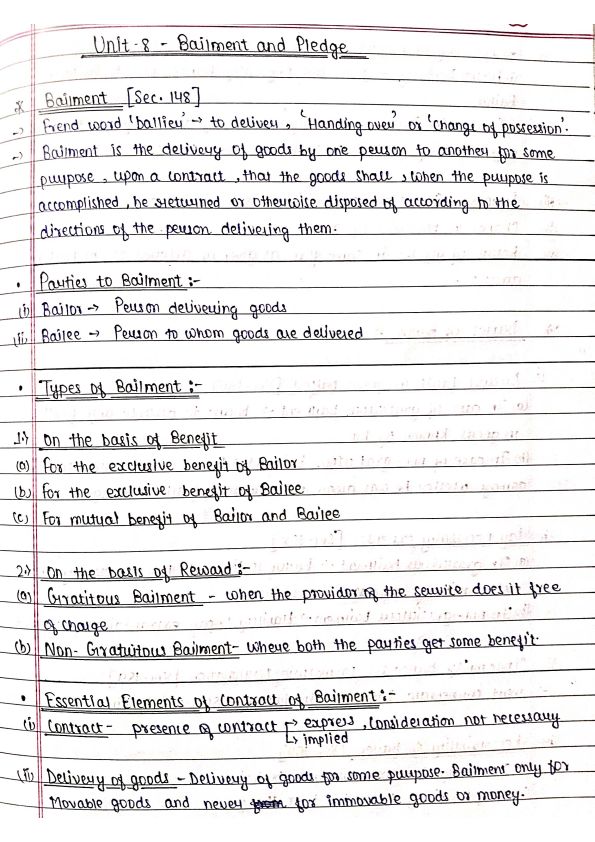 Unit-8 - Bailment and Pledge
* Bailment [Sec. 148]
→ Frend word 'ballier' → to deliver, 'Handing over' or 'change of possession'.
→ Bailment is the delivery of goods by one person to another for some
purpose, upon a contract, that the goods shall, when the purpose is
accomplished, be returned or otherwise disposed of according to the
directions of the person delivering them.
• Parties to Bailment :-
(i) Bailor → Person delivering goods
(ii) Bailee → Person to whom goods are delivered
• Types of Bailment :-
1.) On the basis of Benefit
(a) For the exclusive benefit of Bailor
(b) For the exclusive benefit of Bailee
(c) For mutual benefit of Bailor and Bailee
2.) On the basis of Reward :-
(a) Gratitous Bailment - when the providor of the service does it free
of charge
(b) Non-Gratuitous Bailment - where both the parties get some benefit.
• Essential Elements of Contract of Bailment :-
(i) Contract - presence of contract → express, Consideration not necessary
↳ implied
(ii) Delivery of goods - Delivery of goods for some purpose. Bailment only for
Movable goods and never for immovable goods or money.